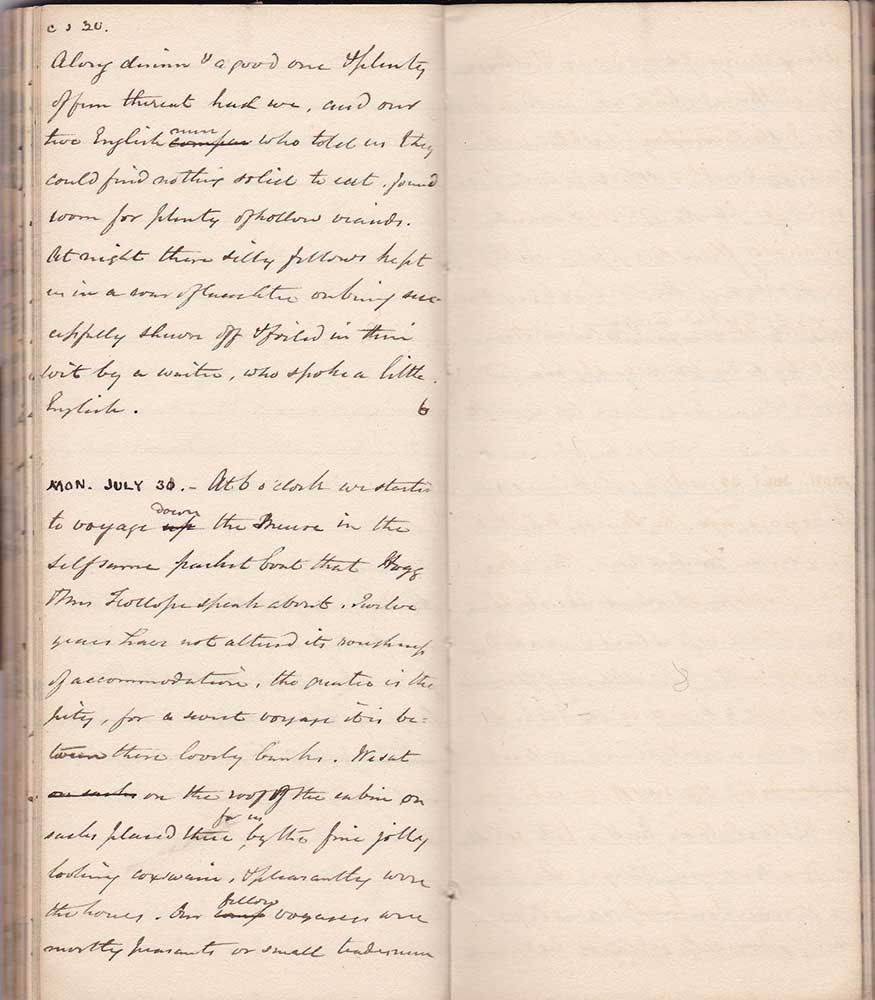 c s 30.
A long dinner & a good one & plenty
of fun thereat had we, and our
two English compan men who told us they
could find nothing solid to eat. found
room for plenty of hollow viands.
At night these silly fellows kept
us in a roar of laughter on being suc-
cessfully shewn off & foiled in their
wit by a waiter, who spoke a little
English. 6
MON. JULY 30. - At 6 o'clock we started
to voyage up down the Meuse in the
selfsame packet boat that Hogg
& Mrs Trollope speak about. Twelve
years have not altered its roughness
of accommodation, the greater is the
pity, for a sweet voyage it is be=
tween these lovely banks. We sat
on sacks on the roof of the cabin on
sacks placed there for us by the fine jolly
looking coxswain, & pleasantly wore
the hours. Our comp fellow voyagers were
mostly peasants or small tradesmen
MON. JULY 30